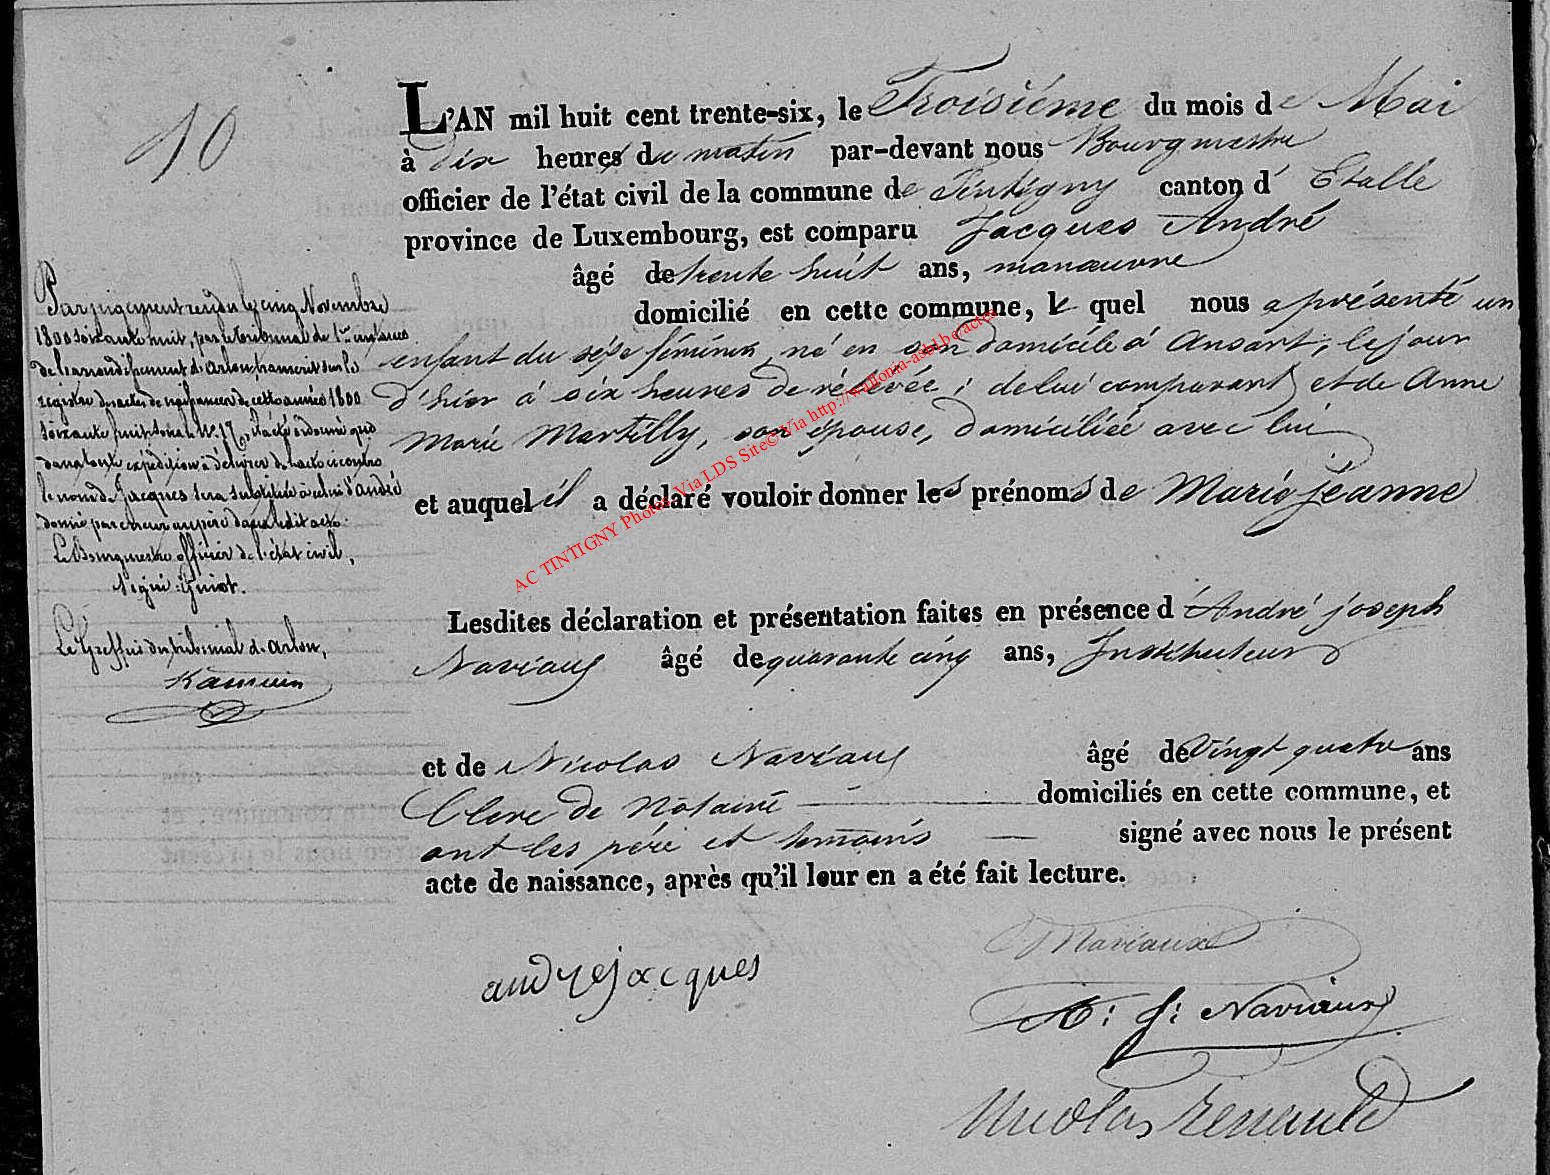 10
L'AN mil huit cent trente-six, le Troisiéme du mois de Mai
à dix heures du matin par-devant nous Bourgmestre
officier de l'état civil de la commune de Tintigny canton d' Etalle
province de Luxembourg, est comparu Jacques André
âgé de trente huit ans, manœuvre
domicilié en cette commune, le quel nous a présenté un
enfant du séxe féminin, né en son domicile à Ansart, le jour
d'hier à six heures de rélevée, de lui comparant et de Anne
Marie Martilly, son épouse, domiciliée avec lui
et auquel il a déclaré vouloir donner les prénoms de Marie jéanne
Lesdites déclaration et présentation faites en présence d'André joseph
Naviaux âgé de quarante cinq ans, Instituteur
et de Nicolas Naviaux âgé de vingt quatre ans
Clerc de Notaire domiciliés en cette commune, et
ont les pére et temoins signé avec nous le présent
acte de naissance, après qu'il leur en a été fait lecture.
andrejacques
Naviaux
A: J: Naviaux
Nicolas Renauld
Par jugement rendu le cinq Novembre
1800 soixante huit, par le tribunal de 1re instance
de l'arrondissement d'Arlon, transcrit sur le
registre des actes de naissances de cette année 1800
soixante huit sous le No. 17, il a été ordonné que
dans toute expédition à délivrer de l'acte ci contre
le nom de Jacques sera substitué à celui d'andré
donné par erreur au père dans ledit acte.
Le Bourgmestre officier de l'état civil,
Signé: Guiot.
Le Greffier du tribunal d'arlon,
AC TINTIGNY Photos Via LDS Site© Via http://wallonia-asbl.be/actes